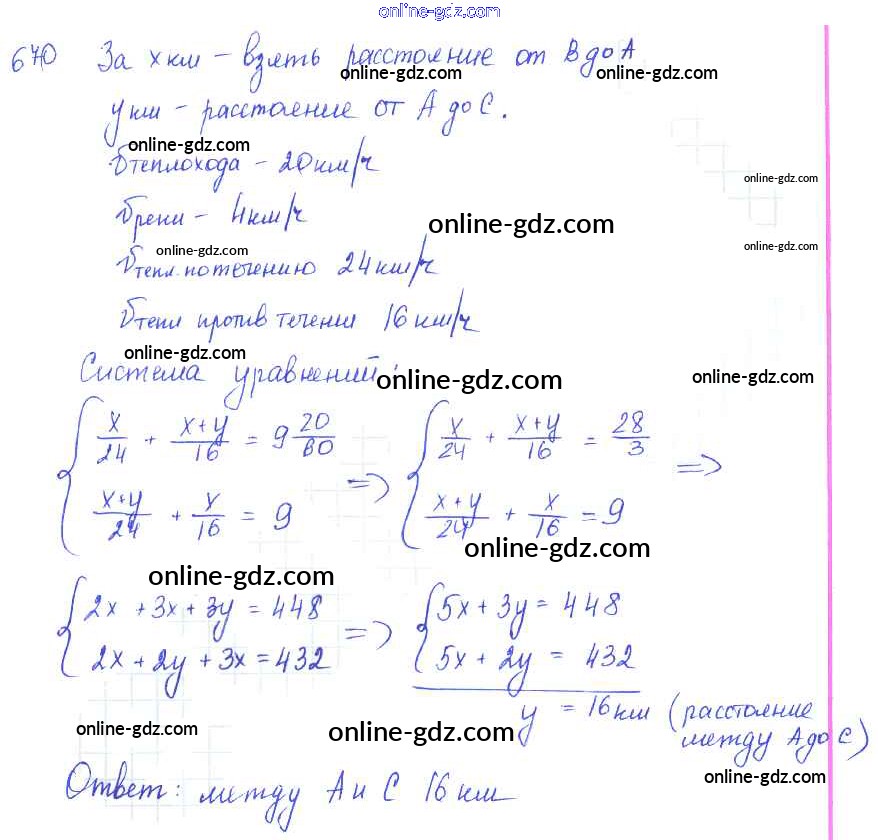 online-gdz.com
670 За x км – взять расстояние от В до А
online-gdz.com online-gdz.com
y км – расстоение от А до С.
online-gdz.com
Vтеплохода – 20 км/ч
online-gdz.com
Vреки – 4 км/ч
online-gdz.com
online-gdz.com
online-gdz.com
Vтепл. по течению 24 км/ч
Vтепл против течения 16 км/ч
online-gdz.com
Система уравнений:
online-gdz.com online-gdz.com
{ x/24 + (x+y)/16 = 9 20/60 => { x/24 + (x+y)/16 = 28/3 =>
{ (x+y)/24 + x/16 = 9 { (x+y)/24 + x/16 = 9
online-gdz.com
online-gdz.com
{ 2x + 3x + 3y = 448 => { 5x + 3y = 448
{ 2x + 2y + 3x = 432 { 5x + 2y = 432
y = 16 км (расстояние
между А до С)
online-gdz.com online-gdz.com
online-gdz.com
Ответ: между А и С 16 км